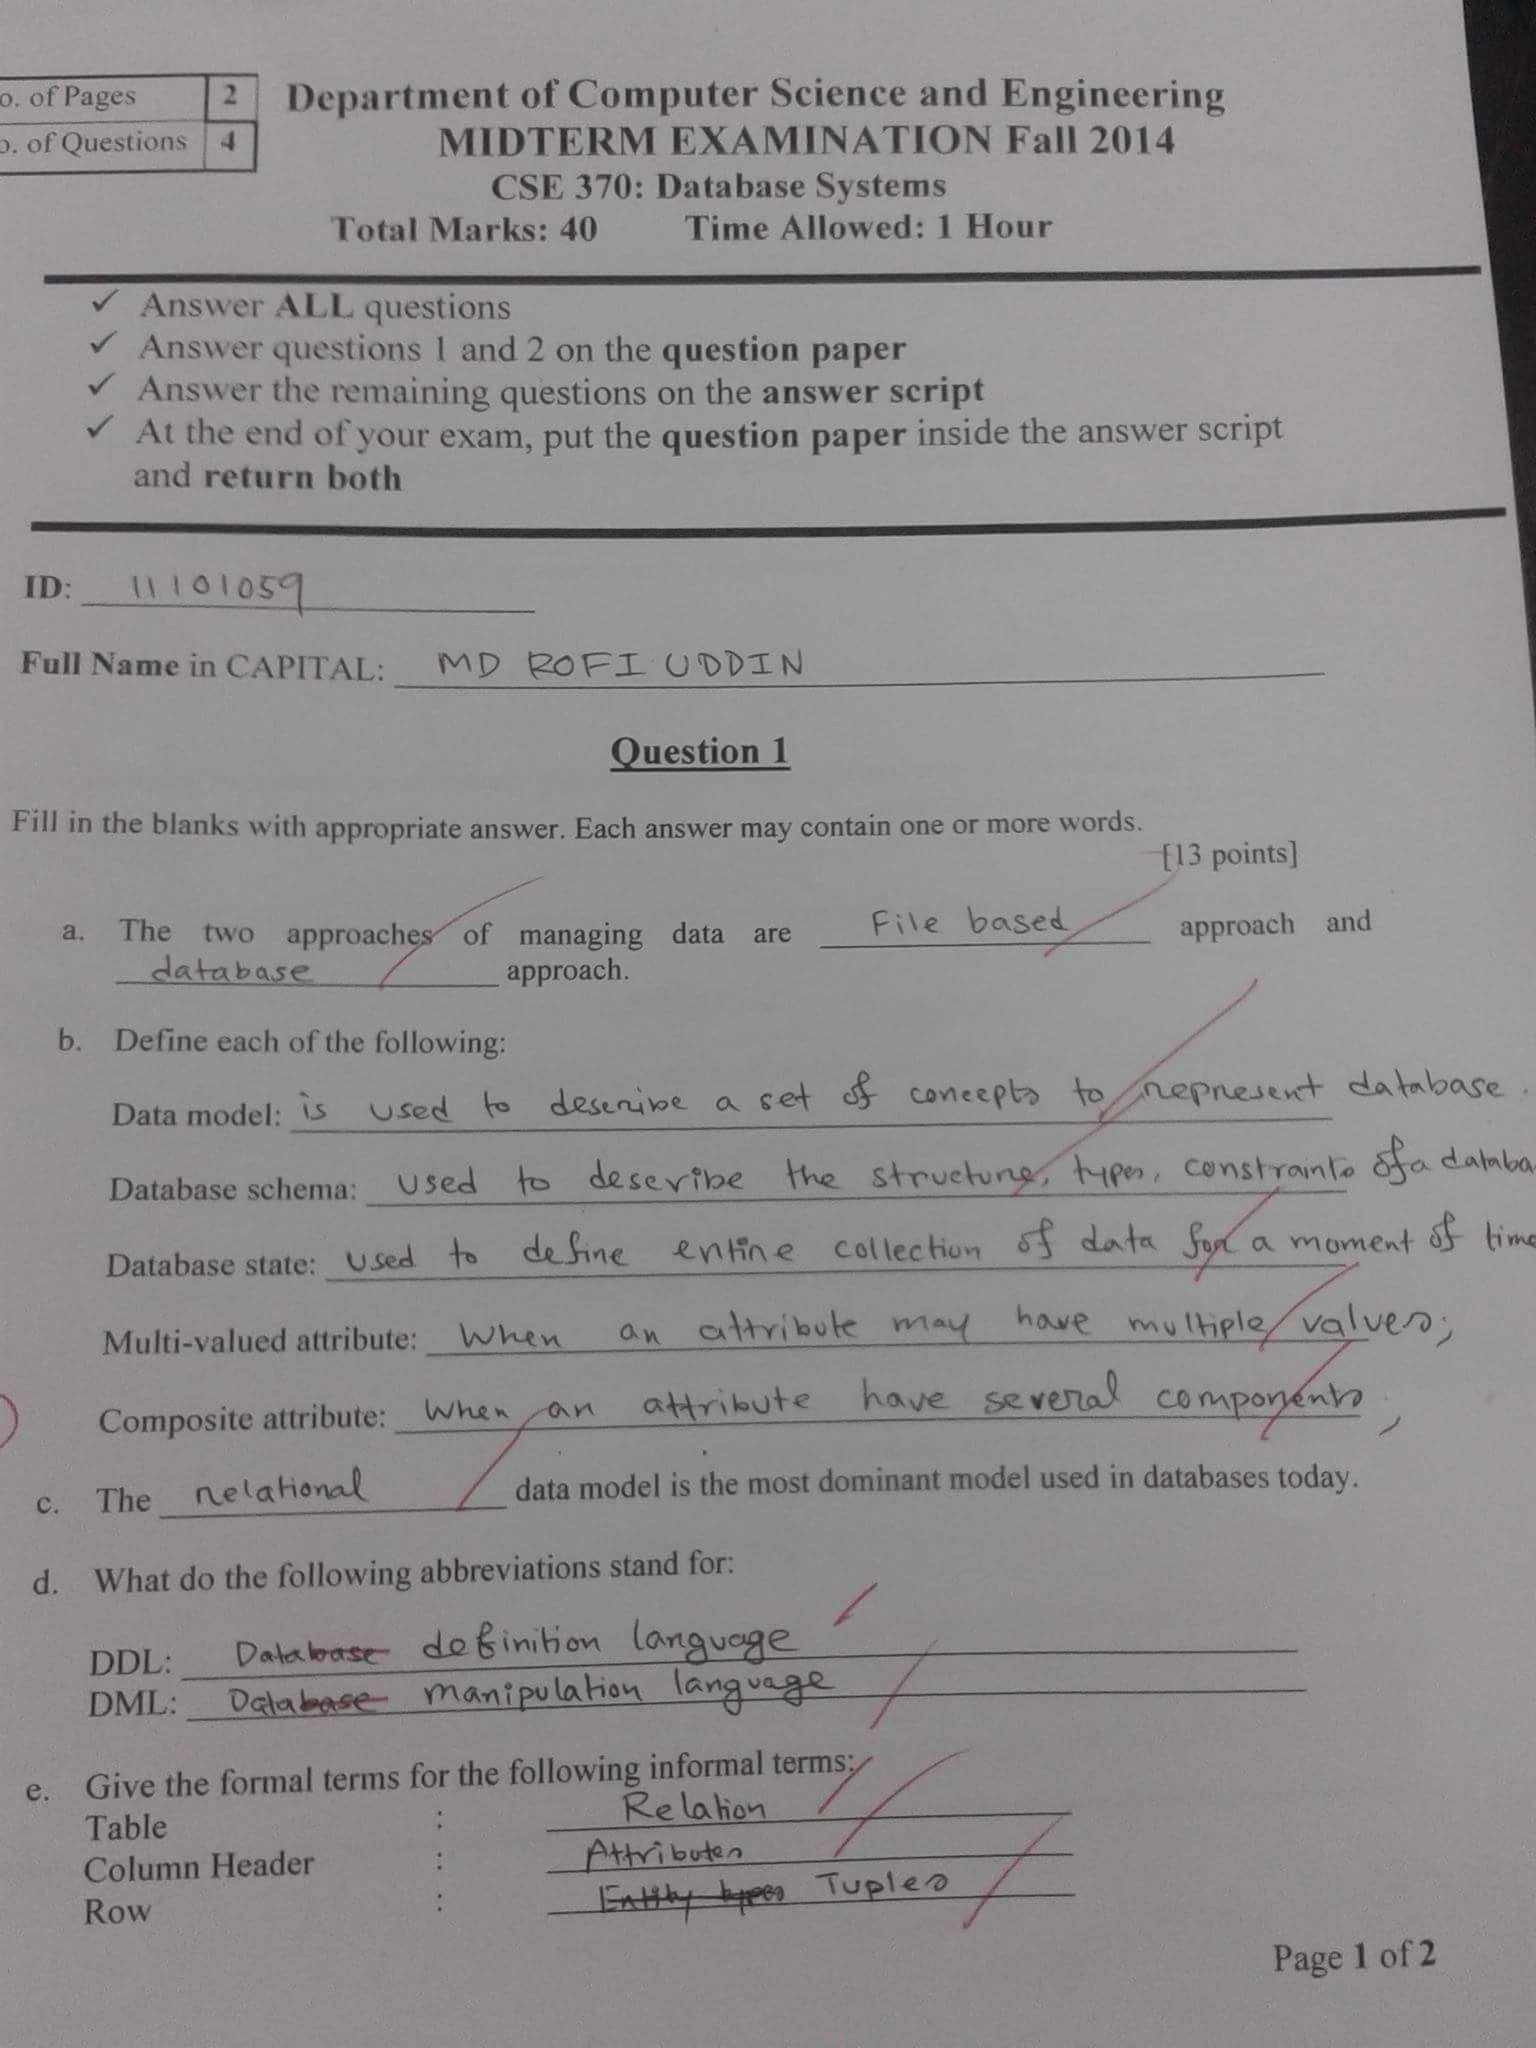 o. of Pages 2
o. of Questions 4
Department of Computer Science and Engineering
MIDTERM EXAMINATION Fall 2014
CSE 370: Database Systems
Total Marks: 40 Time Allowed: 1 Hour
✓ Answer ALL questions
✓ Answer questions 1 and 2 on the question paper
✓ Answer the remaining questions on the answer script
✓ At the end of your exam, put the question paper inside the answer script
and return both
ID: 11101059
Full Name in CAPITAL: MD ROFI UDDIN
Question 1
Fill in the blanks with appropriate answer. Each answer may contain one or more words.
[13 points]
a. The two approaches of managing data are File based approach and
database approach.
b. Define each of the following:
Data model: is used to describe a set of concepts to represent database.
Database schema: used to describe the structure, types, constraints of a databa
Database state: used to define entire collection of data for a moment of time
Multi-valued attribute: When an attribute may have multiple values;
Composite attribute: When an attribute have several components,
c. The relational data model is the most dominant model used in databases today.
d. What do the following abbreviations stand for:
DDL: Database definition language
DML: Database manipulation language
e. Give the formal terms for the following informal terms:
Table : Relation
Column Header : Attributes
Row : Entity types Tuples
Page 1 of 2